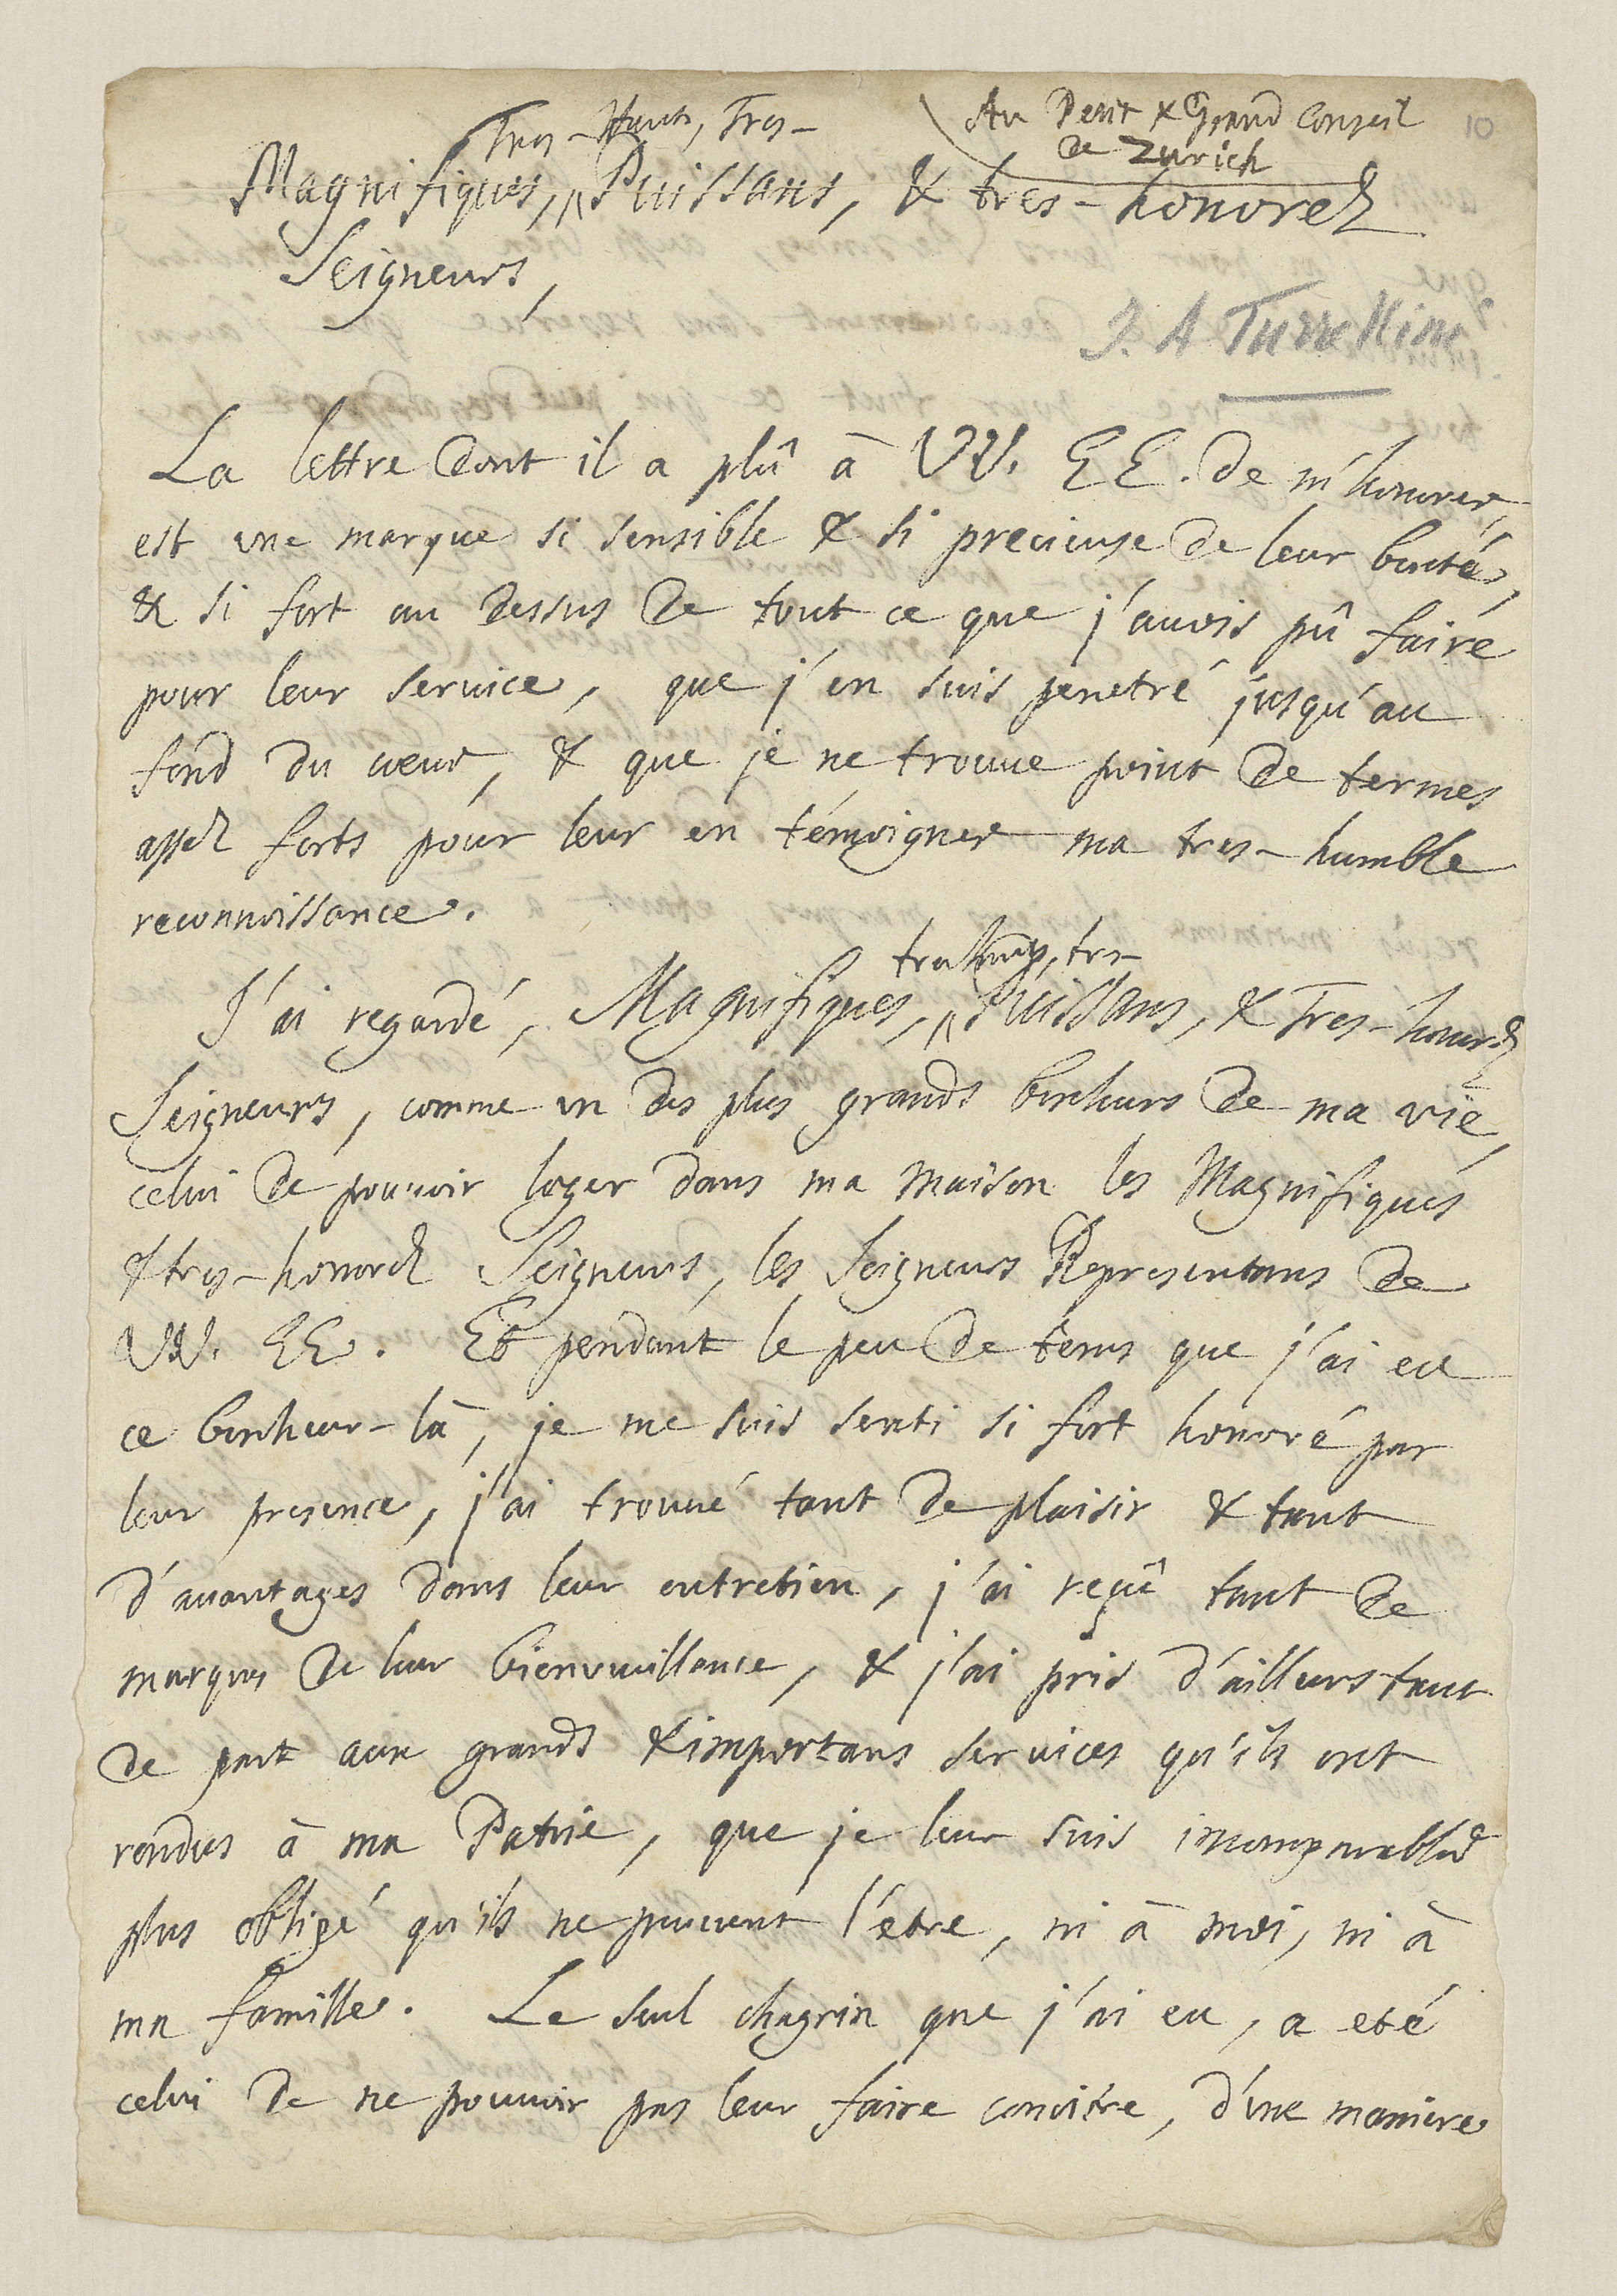 Au Petit & Grand Conseil
de Zurich
10
Tres-Hauts, Tres-
Magnifiques, Puissans, & tres-honorez
Seigneurs,
J. A Turrettini
La lettre dont il a plû à VV. EE. de m'honorer,
est une marque si sensible & si precieuse de leur bonté,
& si fort au dessus de tout ce que j'avois pû faire
pour leur service, que j'en suis penetré jusqu'au
fond du cœur, & que je ne trouve point de termes
assez forts pour leur en témoigner ma tres-humble
reconnoissance.
tres-
J'ai regardé, Magnifiques, Puissans, & Tres-honorez
Seigneurs, comme un des plus grands bonheurs de ma vie,
celui de pouvoir loger dans ma maison les Magnifiques
& tres-honorez Seigneurs, les Seigneurs Representans de
VV. EE. Et pendant le peu de tems que j'ai eu
ce bonheur-là, je me suis senti si fort honoré par
leur presence, j'ai trouvé tant de plaisir & tant
d'avantages dans leur entretien, j'ai reçû tant de
marques de leur bienveuillance, & j'ai pris d'ailleurs tant
de part aux grands & importans services qu'ils ont
rendus à ma Patrie, que je leur suis incomparablet
plus obligé qu'ils ne peuvent l'être, ni à moi, ni à
ma famille. Le seul chagrin que j'ai eu, a eté
celui de ne pouvoir pas leur faire conoitre, d'une maniere